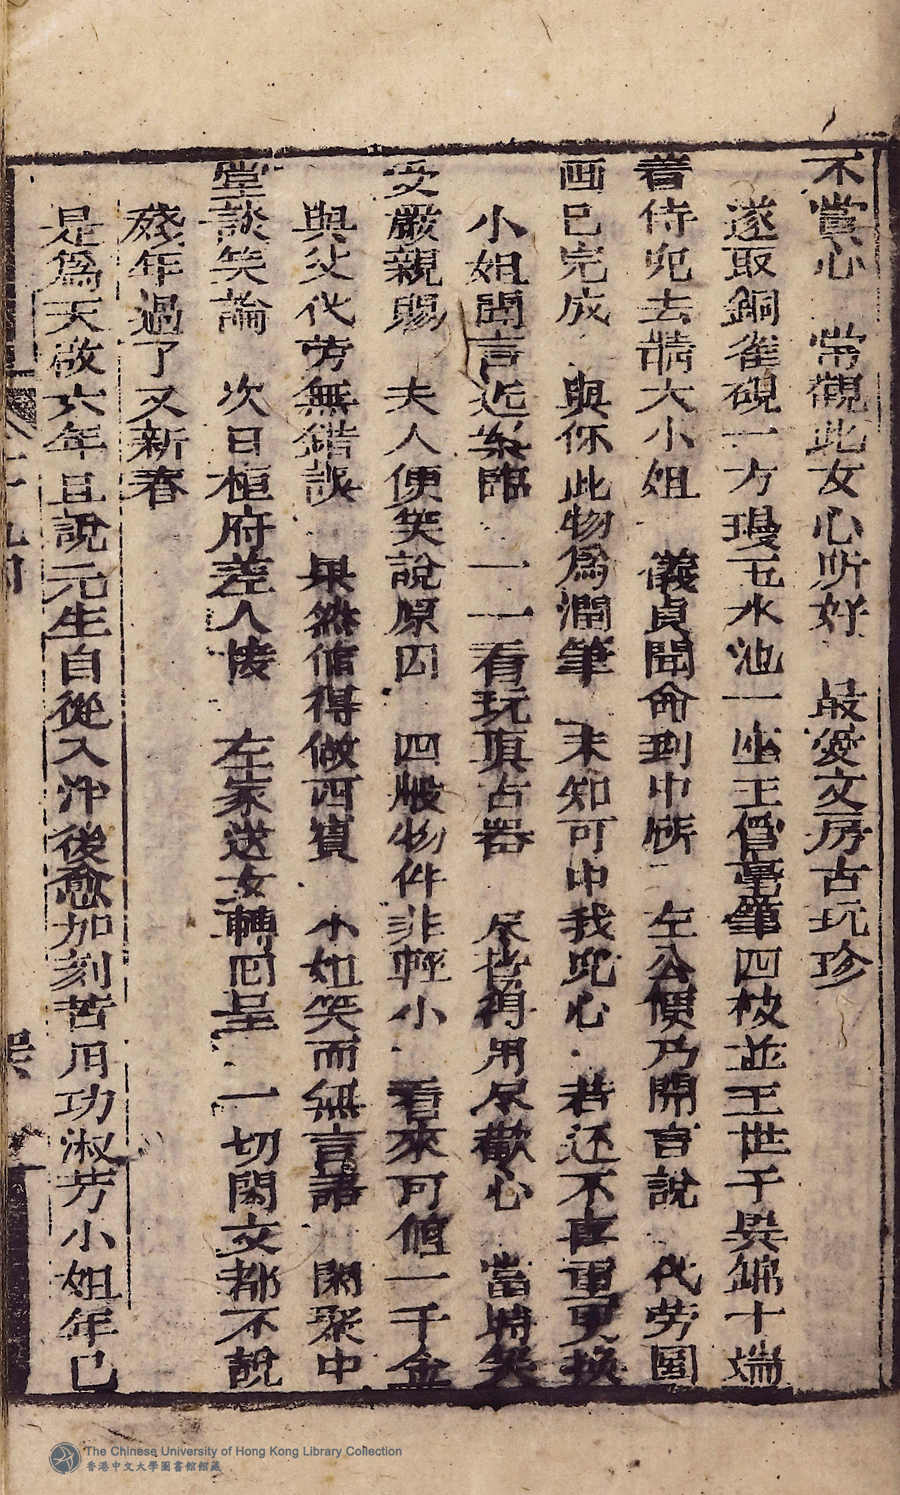 不當心　常觀此女心所好　最愛文房古玩珍
遂取銅雀硯一方瓊玉水池一座王僧毫筆四枝並王世子吳錦十端
着侍兒去請大小姐　儀貞聞命到中廳　左公便乃開言說　代劳圖
画已完成　與你此物為潤筆　未知可中我兒心　若还不喜重更换
小姐聞言近案臨　一一看玩真古器　尽皆得用尽歡心　當時笑
受嚴親賜　夫人便笑說原因　四般物件非輕小　看來可值一千金
與父代劳無錯誤　果然值得做西賓　小姐笑而無言語　閑聚中
堂談笑論　次日桓府差人接　左家送女轉回呈　一切閑文都不說
殘年過了又新春
是爲天啟六年且說元生自從入泮後愈加刻苦用功淑芳小姐年已
The Chinese University of Hong Kong Library Collection
香港中文大學圖書館館藏